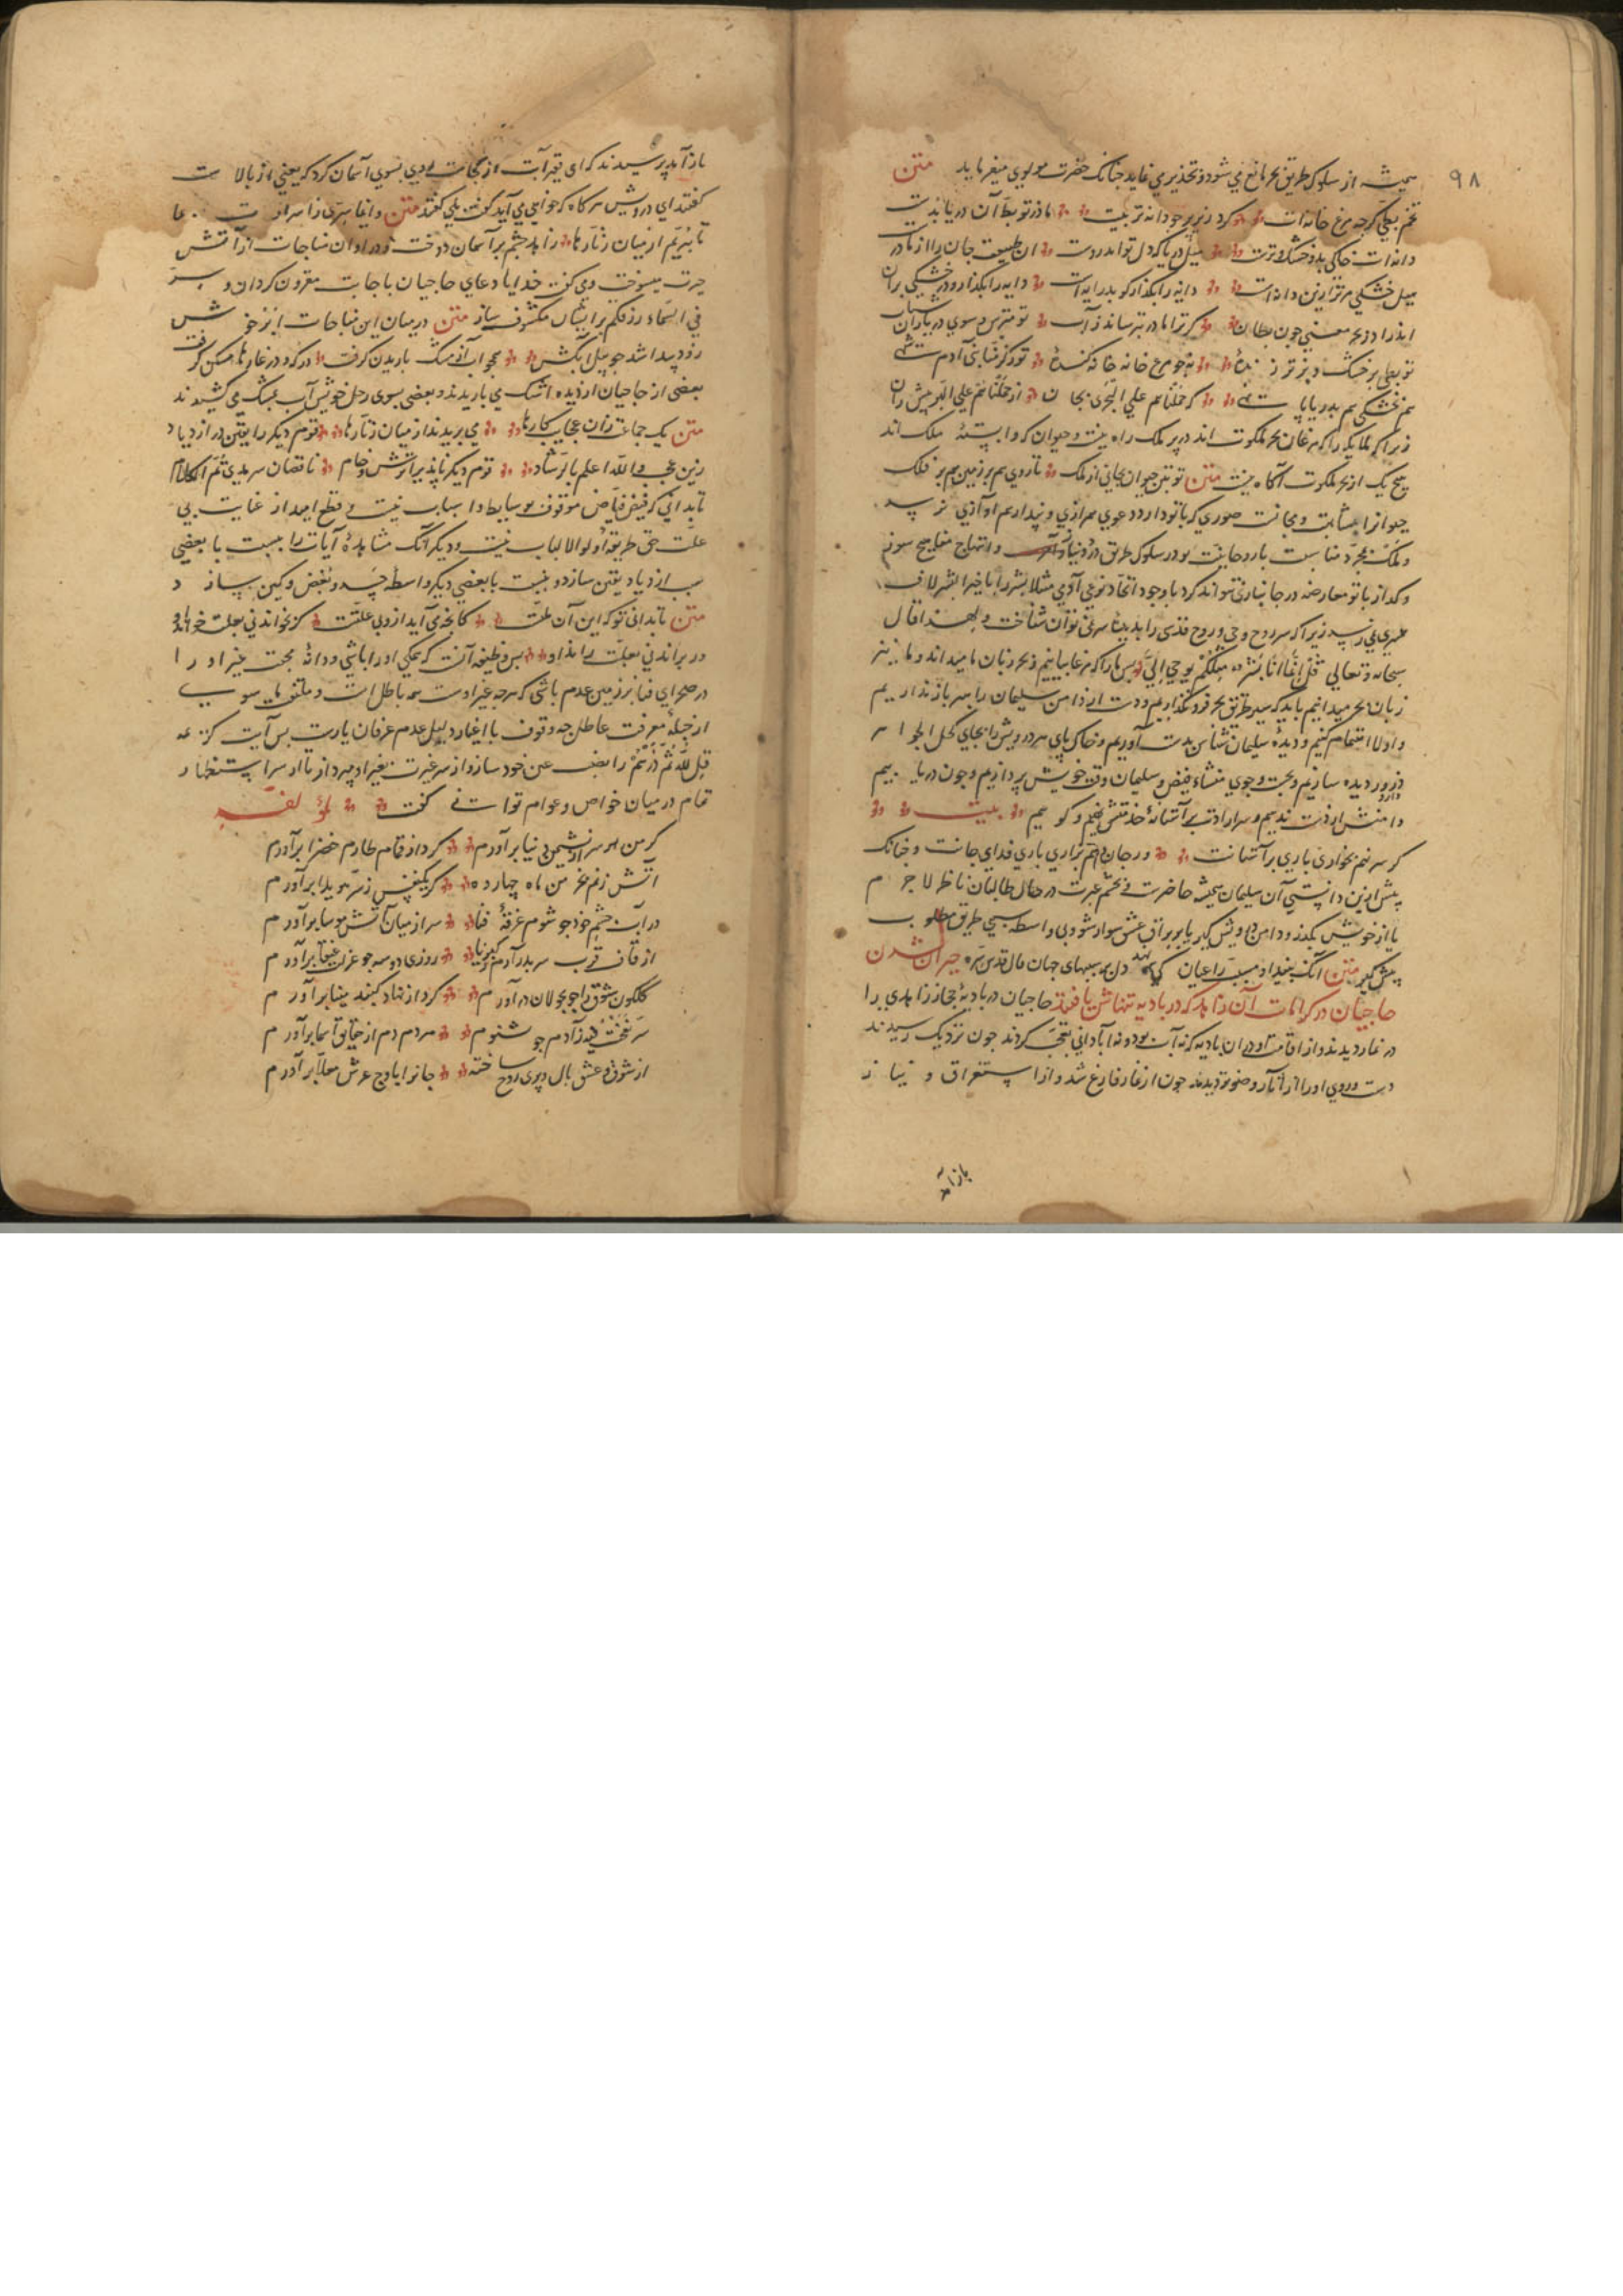 ۹۸
همیشه از سلوک طریق بحر مانع می شود و تحذیر می نماید چنانک حضرت مولوی میفرماید متن
تخم بطی گرچه مرغ خانه ات کرد زیر پر چو دانه تربیت مادر تو بط آن دریا بدست
دایه ات خاکی بد و خشکی پرست میل دریا که دل تو اندرست آن طبیعت جان را از مادر
میل خشکی مر ترا زین دایه است دایه را بگذار کو بدرایه است دایه را بگذار و در خشکی بران
اندرا در بحر معنی چون بطان گر ترا مادر بترساند ز آب تو مترس و سوی دریا ران شتاب
تو بطی بر خشک و بر تر زنده نه چو مرغ خانه خانه کنده تو ز کرمنا بنی آدم شهی
هم بخشکی هم بدریا پا نهی که حملناهم علی البحری بجان از حملناهم علی البر پیش ران
زیرا که ملایکه را که مرغان بحر ملکوت اند در بر ملک راه نیست و حیوان که وابسته ملک اند
هیچ یک از بحر ملکوت آگاه نیست متن تو بتن حیوان بجانی از ملک تا روی هم بر زمین هم بر فلک
حیوانرا بمشابهت و مجانست صوری که با تو دارد دعوی همرازی و پندار هم آوازی نرسد
و ملک بمجرد مناسبت با روحانیت بود در سلوک طریق و انتهاج مناهج
و گداز با تو معارضه در جانبازی نتواند کرد با وجود اتحاد نوعی آدمی مثلا بشر را با خیر البشر لاف
همسری نمی رسد زیرا که سر روح وحی و روح قدسی را بدیده سر نمی توان شناخت و لهذا قال
سبحانه و تعالی قل انما انا بشر مثلکم یوحی الی پس ما را که مرغابیانیم و بحر زبان ما میداند و ما نیز
زبان بحر میدانیم باید که سیر طریق بحر فرو نگذاریم و دست از دامن سلیمان راهبر باز نداریم
و اولا اهتمام کنیم و دیده سلیمان شناس بدست آوریم و خاک پای هر درویش را بجای کحل الجواهر
در دیده سازیم و بجست و جوی منشاء فیض و سلیمان وقت خویش پردازیم و چون دریابیم
دامنش از دست ندهیم و سر ارادت بر آستانه خدمتش نهیم و گوییم بیت
گر سر نهم بخواری باری بر آستانت ور جان دهم بزاری باری فدای جانت و چنانک
پیش ازین دانستی آن سلیمان همیشه حاضرست بچشم عبرت در حال طالبان ناظر لاجرم
یا از خویش بگذر و دامن درویش گیر یا بر براق عشق سوار شو و بی واسطه سببی طریق مطلوب
پیش گیر متن آنک بیند او مسبب را عیان کی نهد دل بر سببهای جهان قال قدس سره حیران شدن
حاجیان در کرامات آن زاهد که در بادیه تنهاش یافتند حاجیان در بادیه حجاز زاهدی را
در نماز دیدند و از اقامت او در آن بادیه که نه آب بود و نه آبادانی تعجب کردند چون نزدیک رسیدند
دست و روی او را از آثار وضو تر دیدند چون از نماز فارغ شد و از استغراق و نیاز
باز آمد
باز آمد پرسیدند که ای فقیر آبت از کجاست وی بسوی آسمان کرد که یعنی از بالاست
گفتند ای درویش هر گاه که خواهی می آید گفت بلی گفتند متن وانما سری ز اسرارت بما
تا ببریم از میان زنارها زاهد چشم بر آسمان دوخت و در اوان مناجات از آتش
حیرت میسوخت و می گفت خدایا دعای حاجیان باجابت مقرون گردان و سر
فی السماء رزقکم بر ایشان مکشوف ساز متن در میان این مناجات ابر خوش
زود پیدا شد چو پیل آبکش همچو آب از مشک باریدن گرفت در گو و در غارها مسکن گرفت
بعضی از حاجیان از دیده اشک می باریدند و بعضی بسوی رحل خویش آب بمشک می کشیدند
متن یک جماعت زان عجایب کارها می بریدند از میان زنارها قوم دیگر را یقین در ازدیاد
زین عجب والله اعلم بالرشاد قوم دیگر ناپذیرا ترش و خام ناقصان سرمدی تم الکلام
تا بدانی که فیض فیاض موقوف وسایط و اسباب نیست و قطع امید از غایت بی
علت حق طریقه اولوالالباب نیست و دیگر آنک مشاهده آیات را نسبت با بعضی
سبب ازدیاد یقین سازد و نسبت با بعضی دیگر واسطه حسد و بغض و کین سازد
متن تا بدانی تو که این آن علت کانچه می آید ازو بی علتست گر بخواند نی بعلت خواند او
ور براند نی بعلت راند او پس وظیفه آنست که همگی او را باشی و دانه محبت غیر او را
در صحرای فنا بر زمین عدم پاشی که هر چه غیر اوست همه باطل است و ملتفت ماسوی
از حیله معرفت عاطل چه وقوف با اغیار دلیل عدم عرفان یارست پس آیت کریمه
قل لله ثم ذرهم را نصب عین خود سازد و از سر غیرت بغیر او نپردازد تا از سر استظهار
تمام در میان خواص و عوام توانی گفت لمؤلفه
گر من سر از نشیمن دنیا برآورم گرد از مقام طارم خضرا برآورم
آتش زنم بخرمن ماه چهارده گر یکنفس ز سر هویدا برآورم
در آب چشم خود چو شوم غرقه فنا سر از میان آتش موسا برآورم
از قاف قرب سر بدر آرم ز کبریا روزی دو سه چو عزلت عنقا برآورم
گلگون شوق را چو بجولان درآورم گرد از نهاد گنبد مینا برآورم
سر نفخت فیه ز آدم چو بشنوم هر دم دم از حقایق اسما برآورم
از شوق و عشق بال و پری روح ساخته جانرا باوج عرش معلا برآورم